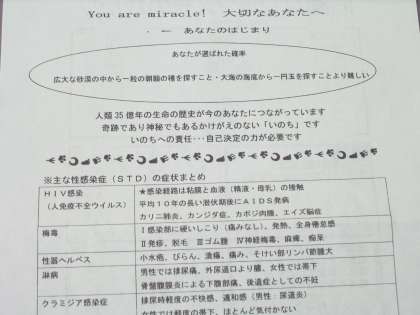 You are miracle! 大切なあなたへ
. ー あなたのはじまり
あなたが選ばれた確率
広大な砂漠の中から一粒の朝顔の種を探すこと・大海の海底から一円玉を探すことより難しい
人類35億年の生命の歴史が今のあなたにつながっています
奇跡であり神秘でもあるかけがえのない「いのち」です
いのちへの責任・・・自己決定の力が必要です
※主な性感染症（STD）の症状まとめ
HIV感染
（人免疫不全ウイルス）
★感染経路は粘膜と血液（精液・母乳）の接触
平均10年の長い潜伏期後にAIDS発病
カリニ肺炎、カンジダ症、カポジ肉腫、エイズ脳症
梅毒
Ⅰ感染部に硬いしこり（痛みなし）、発熱、全身倦怠感
Ⅱ発疹、脱毛 Ⅲゴム腫 Ⅳ神経梅毒、麻痺、痴呆
性器ヘルペス
小水疱、びらん、潰瘍、痛み、そけい部リンパ節腫大
淋病
男性では排尿痛、外尿道口より膿、女性では帯下
骨盤腹膜炎による下腹部痛、後遺症としての不妊
クラミジア感染症
排尿時軽度の不快感、違和感（男性：尿道炎）
女性では軽度の帯下、ほとんど気付かない